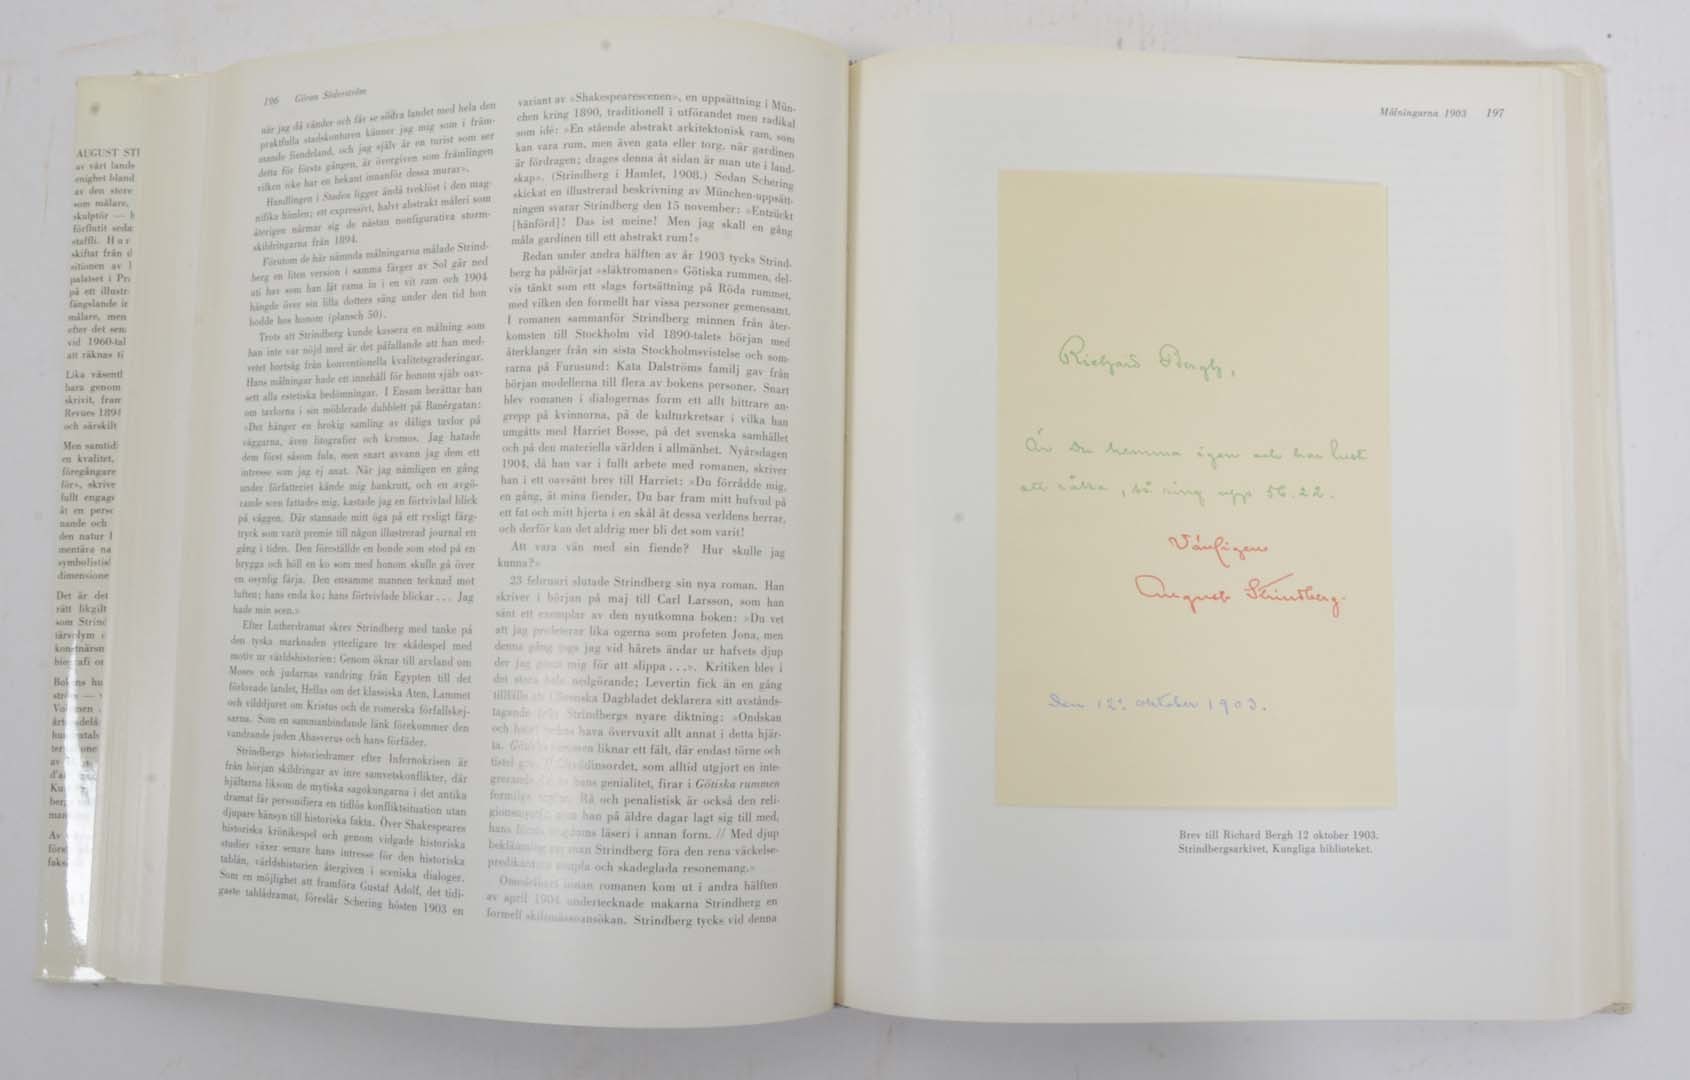 AUGUST STI
av vårt lands
enighet bland
av den store
som målare,
skulptör — h
förflutit seda
staffli. Hur
skiftat från d
sitionen av l
palatset i Pra
på ett illustr
fängslande ir
målare, men
efter det sena
vid 1960-tal
att räknas ti
Lika väsentl
bara genom
skrivit, fram
Revues 1894
och särskilt
Men samtidi
en kvalitet,
föregångare
för», skrive
fullt engage
åt en perso
nande och
den natur l
mentära na
symbolistisl
dimensione
Det är det
rätt likgilt
som Strind
196 Göran Söderström
när jag då vänder och får se södra landet med hela den
praktfulla stadskonturen känner jag mig som i främ-
mande fiendeland, och jag själv är en turist som ser
detta för första gången, är övergiven som främlingen
vilken icke har en bekant innanför dessa murar».
Handlingen i Staden ligger ändå tveklöst i den mag-
nifika himlen; ett expressivt, halvt abstrakt måleri som
återigen närmar sig de nästan nonfigurativa storm-
skildringarna från 1894.
Förutom de här nämnda målningarna målade Strind-
berg en liten version i samma färger av Sol går ned
uti hav som han lät rama in i en vit ram och 1904
hängde över sin lilla dotters säng under den tid hon
bodde hos honom (plansch 50).
Trots att Strindberg kunde kassera en målning som
han inte var nöjd med är det påfallande att han med-
vetet bortsåg från konventionella kvalitetsgraderingar.
Hans målningar hade ett innehåll för honom själv oav-
sett alla estetiska bedömningar. I Ensam berättar han
om tavlorna i sin möblerade dubblett på Banérgatan:
»Det hänger en brokig samling av dåliga tavlor på
väggarna, även litografier och kromos. Jag hatade
dem först såsom fula, men snart avvann jag dem ett
intresse som jag ej anat. När jag nämligen en gång
under författeriet kände mig bankrutt, och en avgö-
rande scen fattades mig, kastade jag en förtvivlad blick
på väggen. Där stannade mitt öga på ett rysligt färg-
tryck som varit premie till någon illustrerad journal en
gång i tiden. Den föreställde en bonde som stod på en
brygga och höll en ko som med honom skulle gå över
en osynlig färja. Den ensamme mannen tecknad mot
luften; hans enda ko; hans förtvivlade blickar... Jag
hade min scen.»
Efter Lutherdramat skrev Strindberg med tanke på
den tyska marknaden ytterligare tre skådespel med
motiv ur världshistorien: Genom öknar till arvland om
Moses och judarnas vandring från Egypten till det
förlovade landet, Hellas om det klassiska Aten, Lammet
och vilddjuret om Kristus och de romerska förfallskej-
sarna. Som en sammanbindande länk förekommer den
vandrande juden Ahasverus och hans förfäder.
Strindbergs historiedramer efter Infernokrisen är
från början skildringar av inre samvetskonflikter, där
hjältarna liksom de mytiska sagokungarna i det antika
dramat får personifiera en tidlös konfliktsituation utan
djupare hänsyn till historiska fakta. Över Shakespeares
historiska krönikespel och genom vidgade historiska
studier växer senare hans intresse för den historiska
tablån, världshistorien återgiven i sceniska dialoger.
Som en möjlighet att framföra Gustaf Adolf, det tidi-
gaste tablådramat, föreslår Schering hösten 1903 en
variant av »Shakespearescenen», en uppsättning i Mün-
chen kring 1890, traditionell i utförandet men radikal
som idé: »En stående abstrakt arkitektonisk ram, som
kan vara rum, men även gata eller torg, när gardinen
är fördragen; drages denna åt sidan är man ute i land-
skap». (Strindberg i Hamlet, 1908.) Sedan Schering
skickat en illustrerad beskrivning av München-uppsätt-
ningen svarar Strindberg den 15 november: »Entzückt
[hänförd]! Das ist meine! Men jag skall en gång
måla gardinen till ett abstrakt rum!»
Redan under andra hälften av år 1903 tycks Strind-
berg ha påbörjat »släktromanen» Götiska rummen, del-
vis tänkt som ett slags fortsättning på Röda rummet,
med vilken den formellt har vissa personer gemensamt.
I romanen sammanför Strindberg minnen från åter-
komsten till Stockholm vid 1890-talets början med
återklanger från sin sista Stockholmsvistelse och som-
rarna på Furusund: Kata Dalströms familj gav från
början modellerna till flera av bokens personer. Snart
blev romanen i dialogernas form ett allt bittrare an-
grepp på kvinnorna, på de kulturkretsar i vilka han
umgåtts med Harriet Bosse, på det svenska samhället
och på den materiella världen i allmänhet. Nyårsdagen
1904, då han var i fullt arbete med romanen, skriver
han i ett oavsänt brev till Harriet: »Du förrådde mig,
en gång, åt mina fiender. Du bar fram mitt hufvud på
ett fat och mitt hjerta i en skål åt dessa verldens herrar,
och derför kan det aldrig mer bli det som varit!
Att vara vän med sin fiende? Hur skulle jag
kunna?»
23 februari slutade Strindberg sin nya roman. Han
skriver i början på maj till Carl Larsson, som han
sänt ett exemplar av den nyutkomna boken: »Du vet
att jag profeterar lika ogerna som profeten Jona, men
denna gång jogs jag vid hårets ändar ur hafvets djup
der jag mig för att slippa ...». Kritiken blev i
det stora hela nedgörande; Levertin fick än en gång
tillfälle att i Svenska Dagbladet deklarera sitt avstånds-
tagande från Strindbergs nyare diktning: »Ondskan
och hava övervuxit allt annat i detta hjär-
ta. Götiska rummen liknar ett fält, där endast törne och
tistel som alltid utgjort en inte-
grerande hans genialitet, firar i Götiska rummen
Rå och penalistisk är också den reli-
han på äldre dagar lagt sig till med,
hans läseri i annan form. // Med djup
beklämning ser man Strindberg föra den rena väckelse-
predikantens och skadeglada resonemang.»
Omedelbart innan romanen kom ut i andra hälften
av april 1904 undertecknade makarna Strindberg en
formell skilsmässoansökan. Strindberg tycks vid denna
Målningarna 1903 197
Richard Bergh,
Är Du hemma igen och har lust
att råkas, så ring upp 56.22.
Vänligen
August Strindberg.
Den 12e oktober 1903.
Brev till Richard Bergh 12 oktober 1903.
Strindbergsarkivet, Kungliga biblioteket.